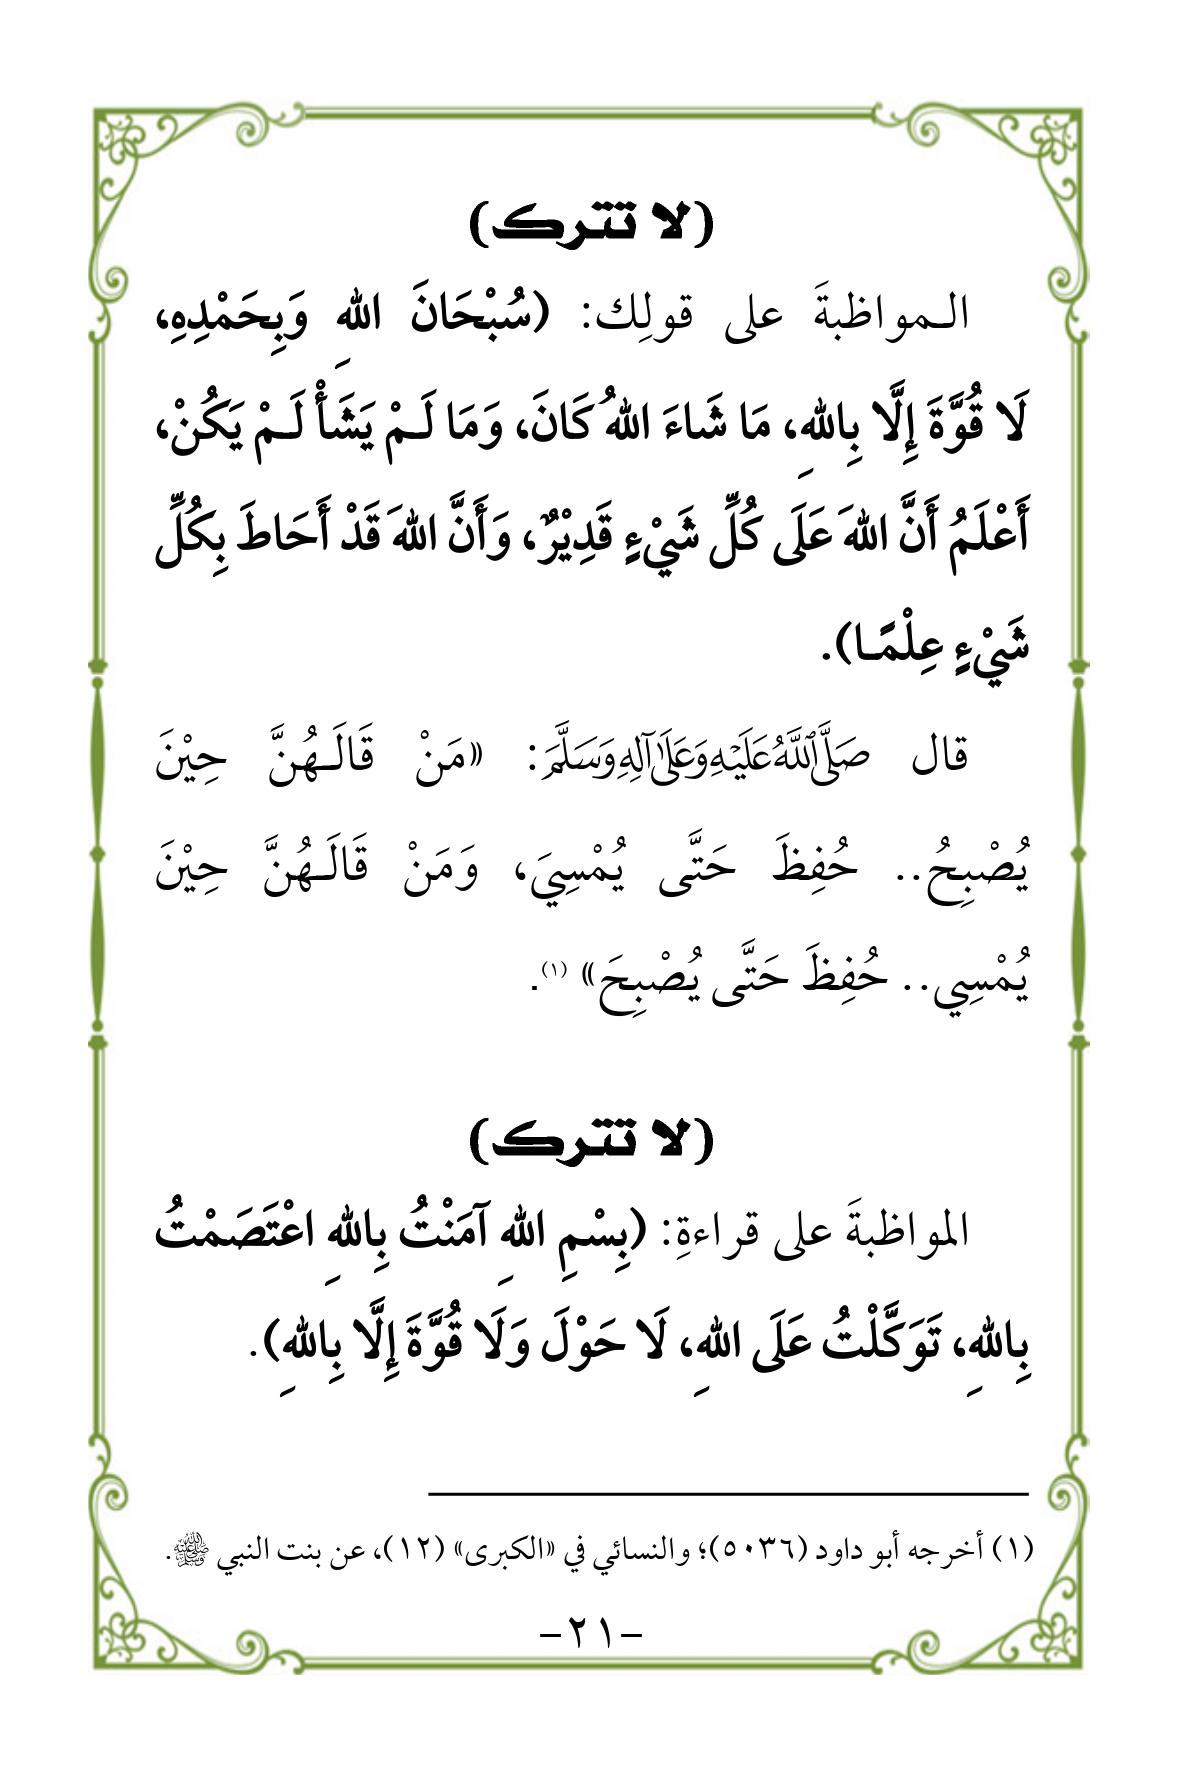 (لا تترك)
الـمواظبةَ على قولِك: (سُبْحَانَ اللهِ وَبِحَمْدِهِ،
لَا قُوَّةَ إِلَّا بِاللهِ، مَا شَاءَ اللهُ كَانَ، وَمَا لَـمْ يَشَأْ لَـمْ يَكُنْ،
أَعْلَمُ أَنَّ اللهَ عَلَى كُلِّ شَيْءٍ قَدِيْرٌ، وَأَنَّ اللهَ قَدْ أَحَاطَ بِكُلِّ
شَيْءٍ عِلْمًـا).
قال صَلَّى اللَّهُ عَلَيْهِ وَعَلَى آلِهِ وَسَلَّمَ: «مَنْ قَالَـهُنَّ حِيْنَ
يُصْبِحُ.. حُفِظَ حَتَّى يُمْسِيَ، وَمَنْ قَالَـهُنَّ حِيْنَ
يُمْسِي.. حُفِظَ حَتَّى يُصْبِحَ» (١).
(لا تترك)
المواظبةَ على قراءةِ: (بِسْمِ اللهِ آمَنْتُ بِاللهِ اعْتَصَمْتُ
بِاللهِ، تَوَكَّلْتُ عَلَى اللهِ، لَا حَوْلَ وَلَا قُوَّةَ إِلَّا بِاللهِ).
(١) أخرجه أبو داود (٥٠٣٦)؛ والنسائي في «الكبرى» (١٢)، عن بنت النبي ﷺ.
-٢١-